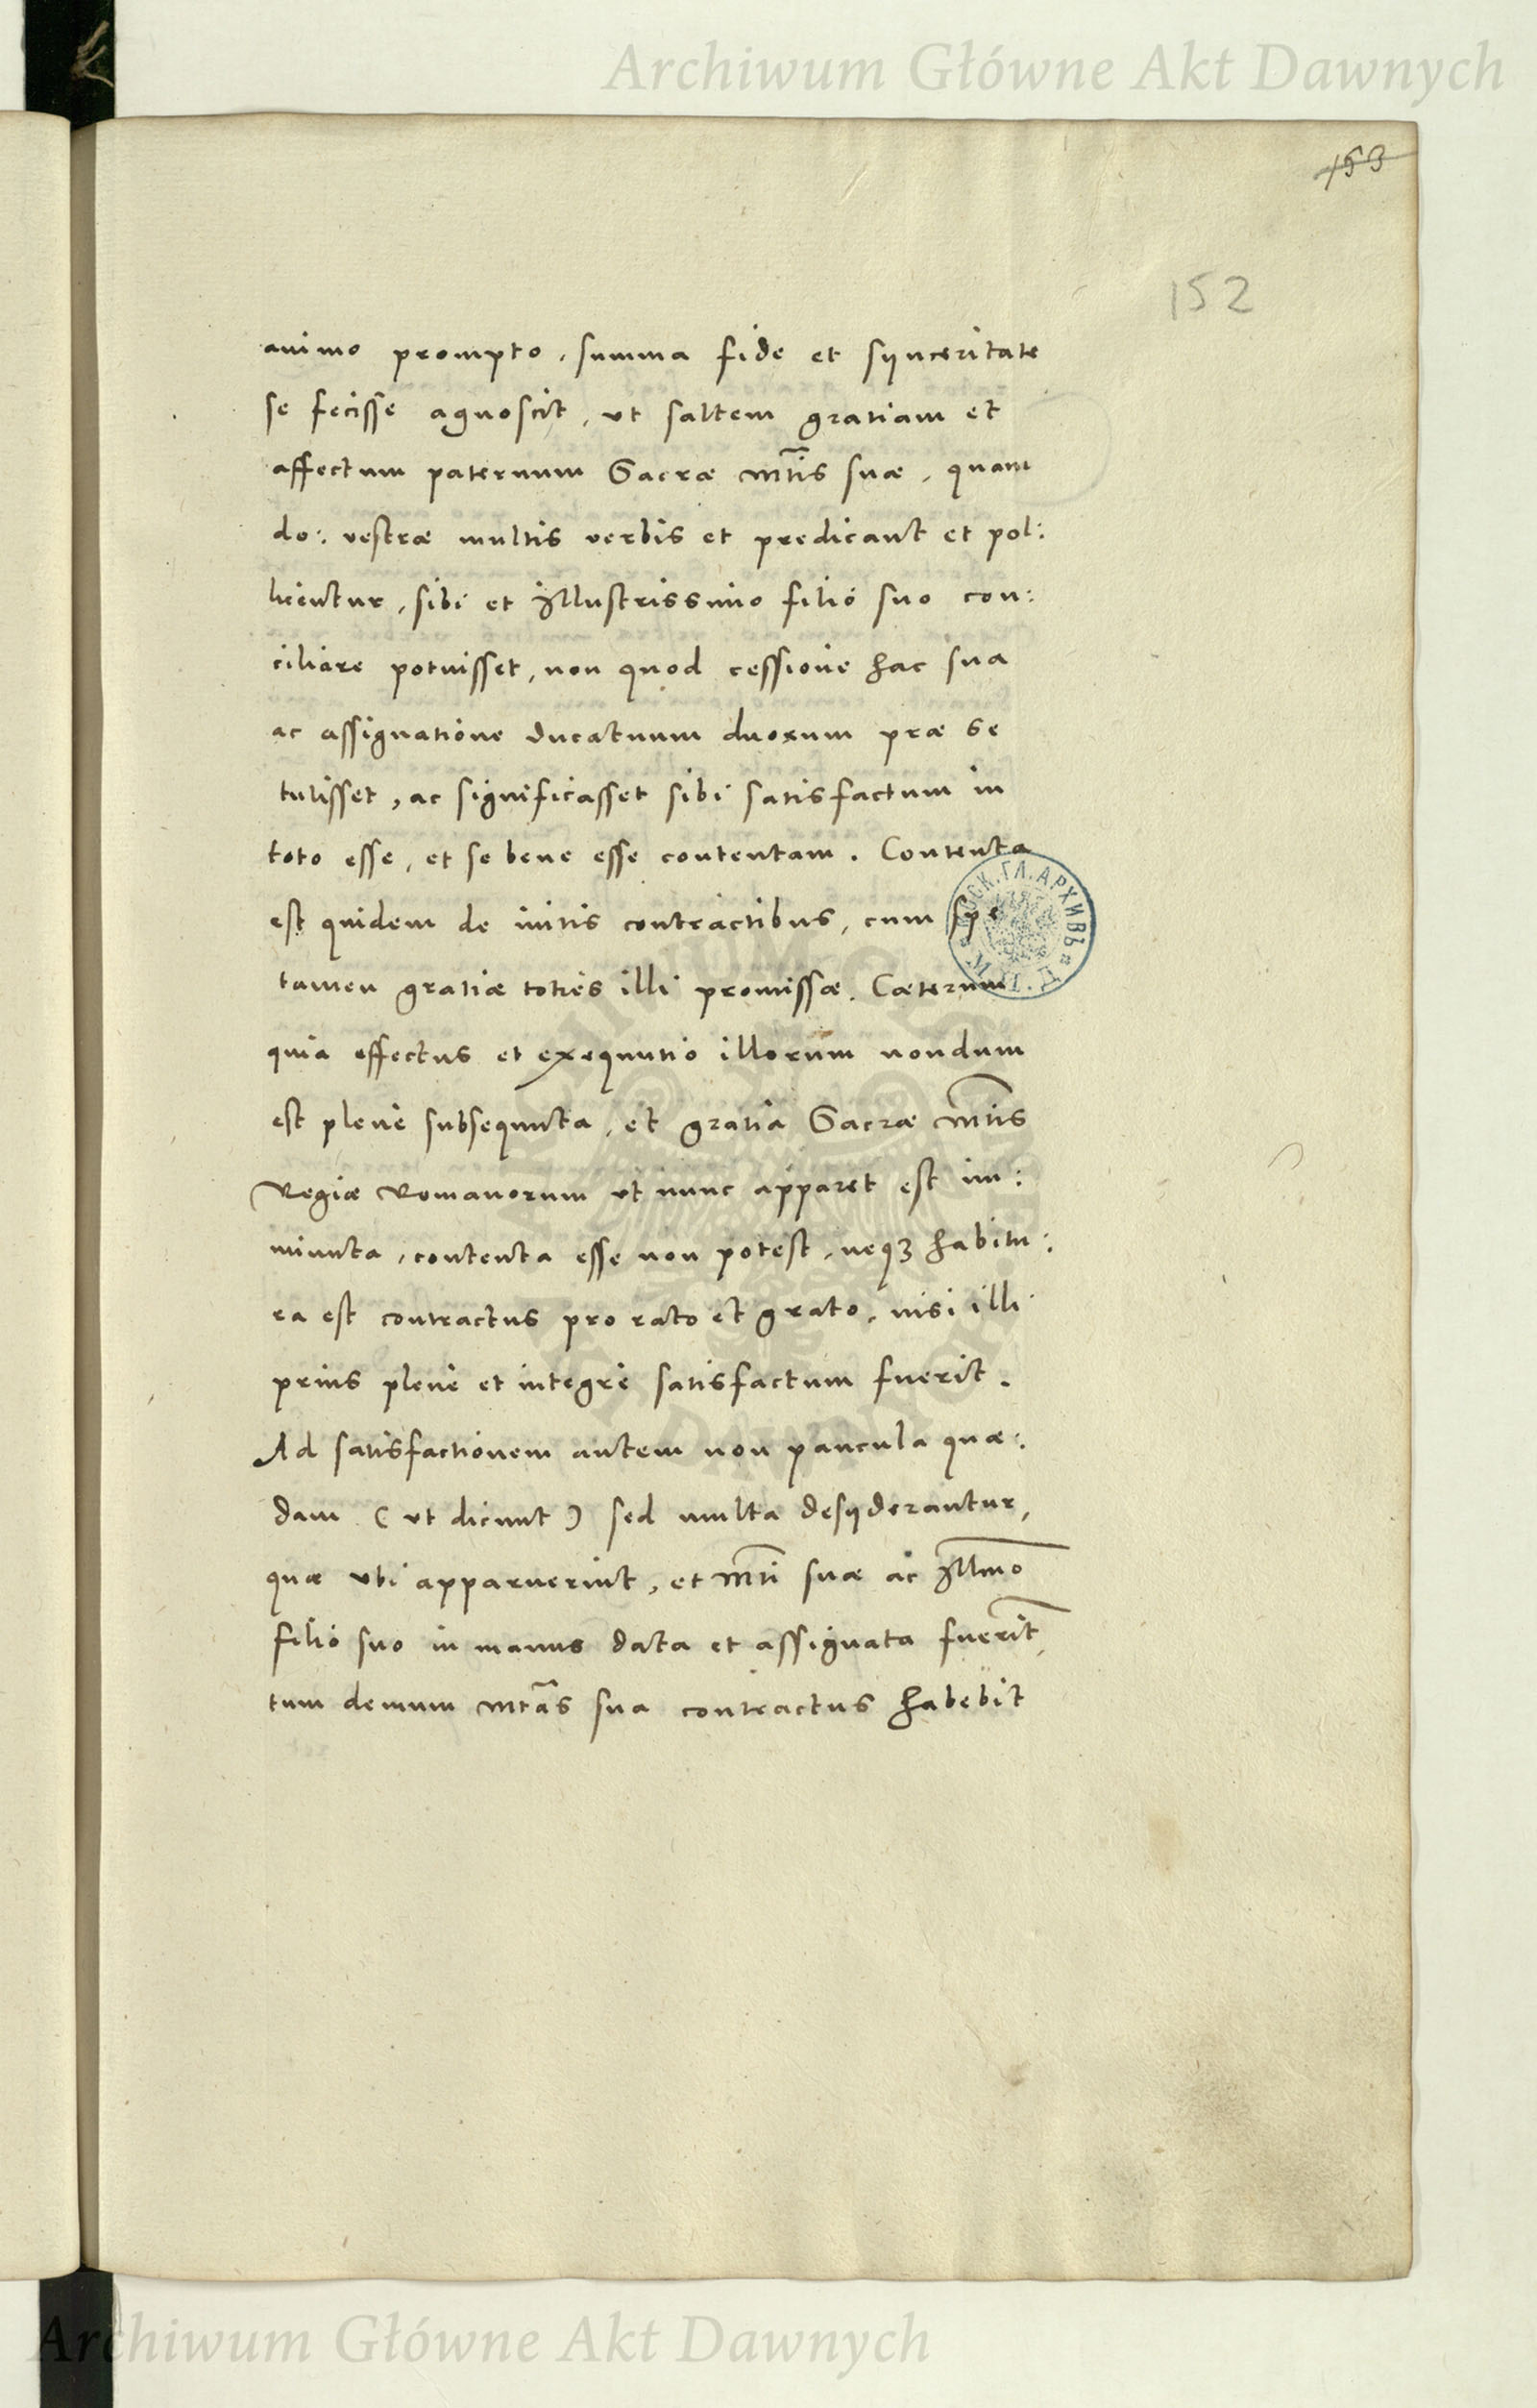 Archiwum Główne Akt Dawnych
153
152
animo prompto, summa fide et synceritate
se fecisse agnoscit, ut saltem gratiam et
affectum paternum Sacræ Mtis suæ, quam
do: vestræ multis verbis et predicant et pol:
licentur, sibi et Illustrissimo filio suo con:
ciliare potuisset, non quod cessione hac sua
ac assignatione ducatuum duorum præ se
tulisset, ac significasset sibi satisfactum in
toto esse, et se bene esse contentam. Contenta
est quidem de initis contractibus, cum spe
tamen gratiæ toties illi promissæ. Cæterum
quia effectus et exequutio illorum nondum
est plene subsequuta, et gratia Sacræ Mtis
Regiæ Romanorum ut nunc apparet est im:
minuta, contenta esse non potest, neqȝ habitu:
ra est contractus pro rato et grato, nisi illi
prius plene et integre satisfactum fuerit.
Ad satisfactionem autem non paucula quæ:
dam (ut dicunt) sed multa desyderantur,
quæ ubi apparuerint, et Mti suæ ac Illmo
filio suo in manus data et assignata fuerint,
tum demum Mtas sua contractus habebit
МОСК. ГЛ. АРХИВЪ М. И. Д.
Archiwum Główne Akt Dawnych